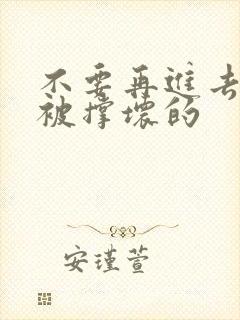 不要再进去
被撑坏的
安瑾萱